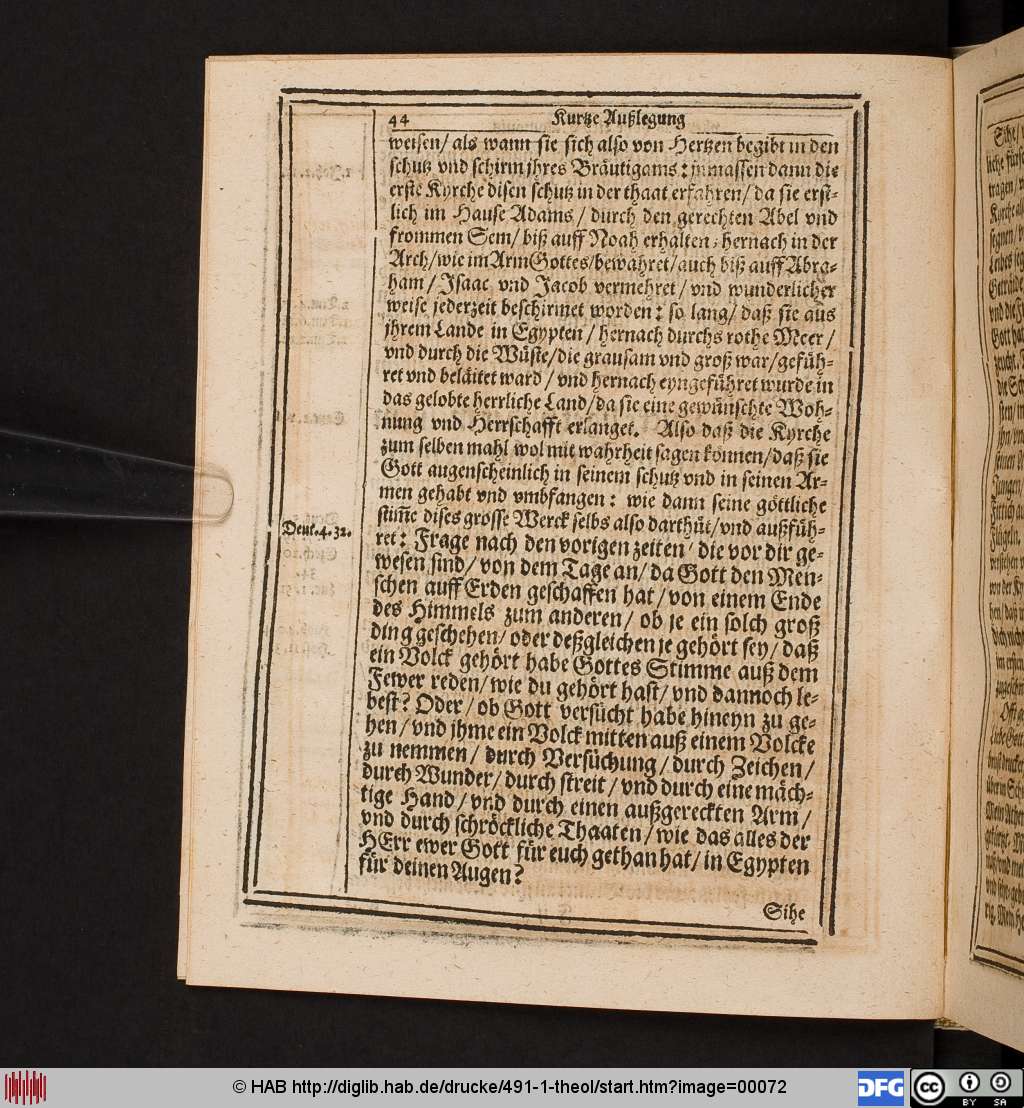 44 Kurtze Außlegung
weisen/ als wann sie sich also von Hertzen begibt in den
schutz vnd schirm jhres Bräutigams: jnmassen dann die
erste Kyrche disen schutz in der thaat erfahren/ da sie erst-
lich im Hause Adams/ durch den gerechten Abel vnd
frommen Sem/ biß auff Noah erhalten, hernach in der
Arch/ wie im Arm Gottes/ bewahret/ auch biß auff Abra-
ham/ Isaac vnd Jacob vermehret/ vnd wunderlicher
weise jederzeit beschirmet worden: so lang/ daß sie aus
jhrem Lande in Egypten/ hernach durchs rothe Meer/
vnd durch die Wüste/ die grausam vnd groß war/ gefüh-
ret vnd beläitet ward/ vnd hernach eyngeführet wurde in
das gelobte herrliche Land/ da sie eine gewünschte Woh-
nung vnd Herrschafft erlanget. Also daß die Kyrche
zum selben mahl wol mit wahrheit sagen können/ daß sie
Gott augenscheinlich in seinem schutz vnd in seinen Ar-
men gehabt vnd vmbfangen: wie dann seine göttliche
stim̃e dises grosse Werck selbs also darthüt/ vnd außfüh-
Deut.4.32.
ret: Frage nach den vorigen zeiten/ die vor dir ge-
wesen sind/ von dem Tage an/ da Gott den Men-
schen auff Erden geschaffen hat/ von einem Ende
des Himmels zum anderen/ ob je ein solch groß
ding geschehen/ oder deßgleichen je gehört sey/ daß
ein Volck gehört habe Gottes Stimme auß dem
Fewer reden/ wie du gehört hast/ vnd dannoch le-
best? Oder/ ob Gott versücht habe hineyn zu ge-
hen/ vnd jhme ein Volck mitten auß einem Volcke
zu nemmen/ durch Versüchung/ durch Zeichen/
durch Wunder/ durch streit/ vnd durch eine mäch-
tige Hand/ vnd durch einen außgereckten Arm/
vnd durch schröckliche Thaaten/ wie das alles der
HErr ewer Gott für euch gethan hat/ in Egypten
für deinen Augen?
Sihe
© HAB http://diglib.hab.de/drucke/491-1-theol/start.htm?image=00072
DFG
cc
BY SA